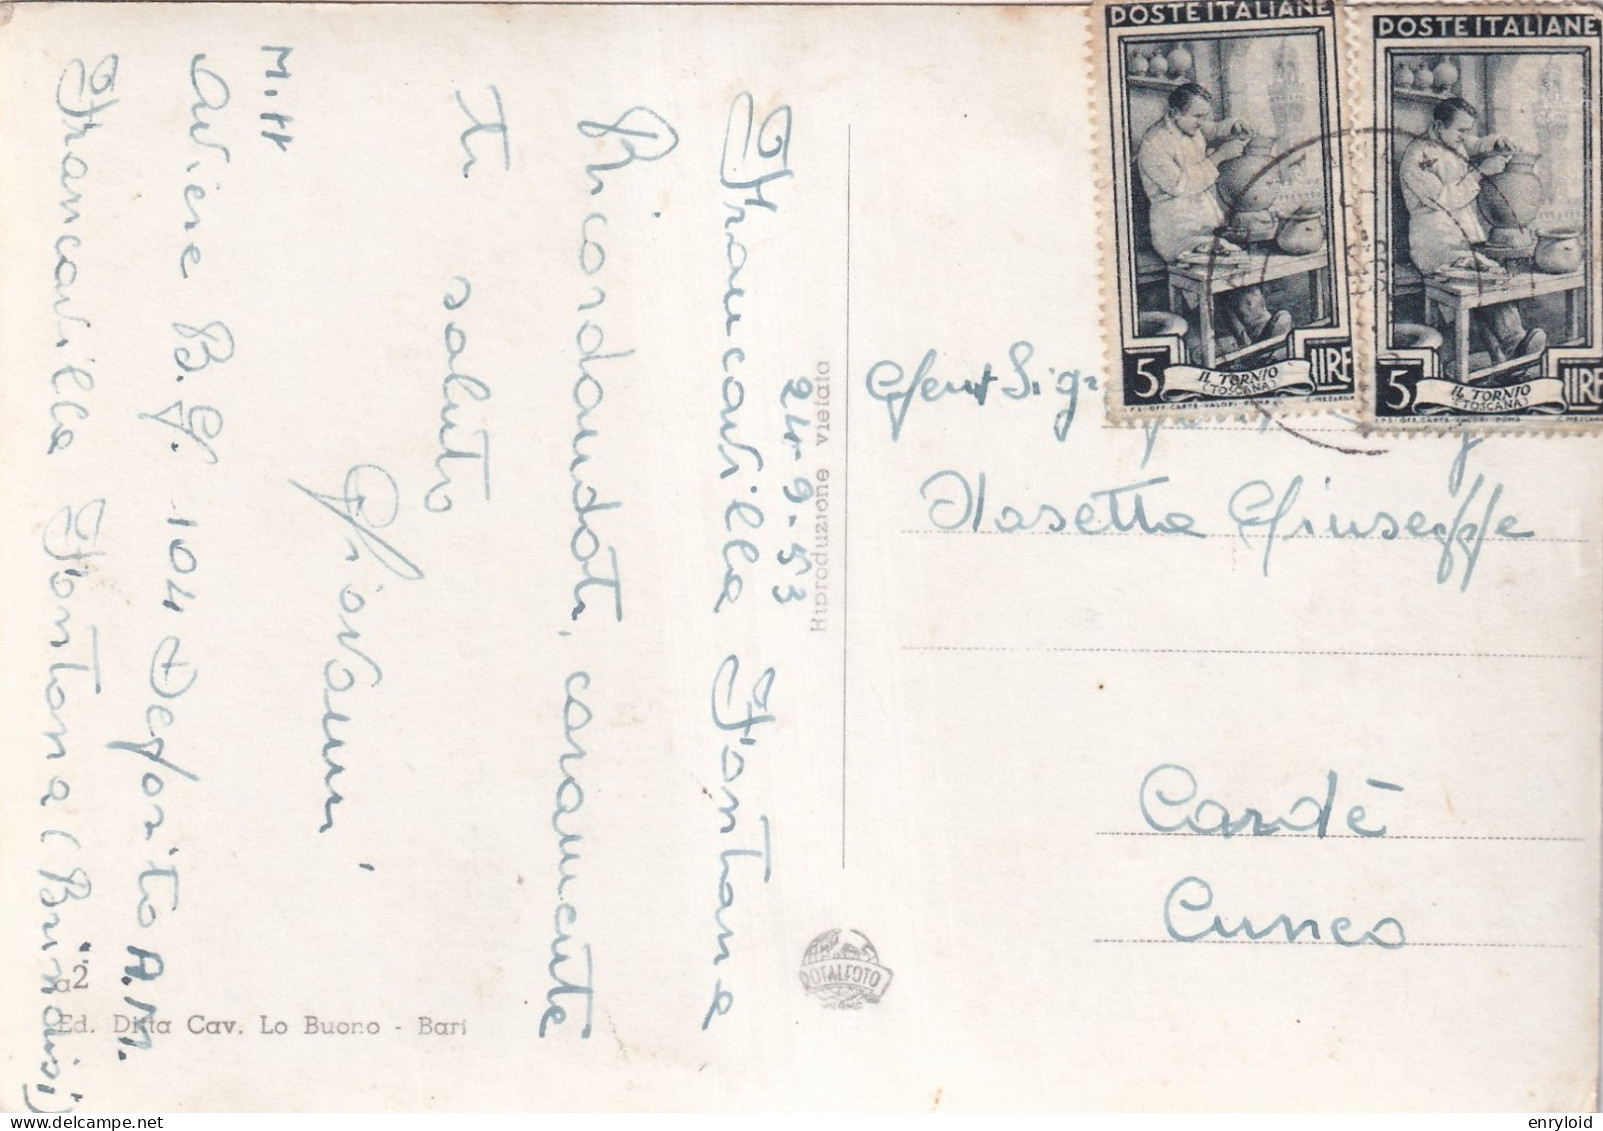 POSTE ITALIANE
5 LIRE
IL TORNIO
(TOSCANA)
POSTE ITALIANE
5 LIRE
IL TORNIO
(TOSCANA)
Francavilla Fontana
24-9-53
Ricordandoti, caramente
ti saluto
Giovanni
M.tt
Aviere B.G. 104 Deposito A.M.
Francavilla Fontana (Brindisi)
Riproduzione vietata
Gent Sig
Nasetta Giuseppe
Cardè
Cuneo
ROTALFOTO
a2
Ed. Ditta Cav. Lo Buono - Bari
enryloid
delcampe.net